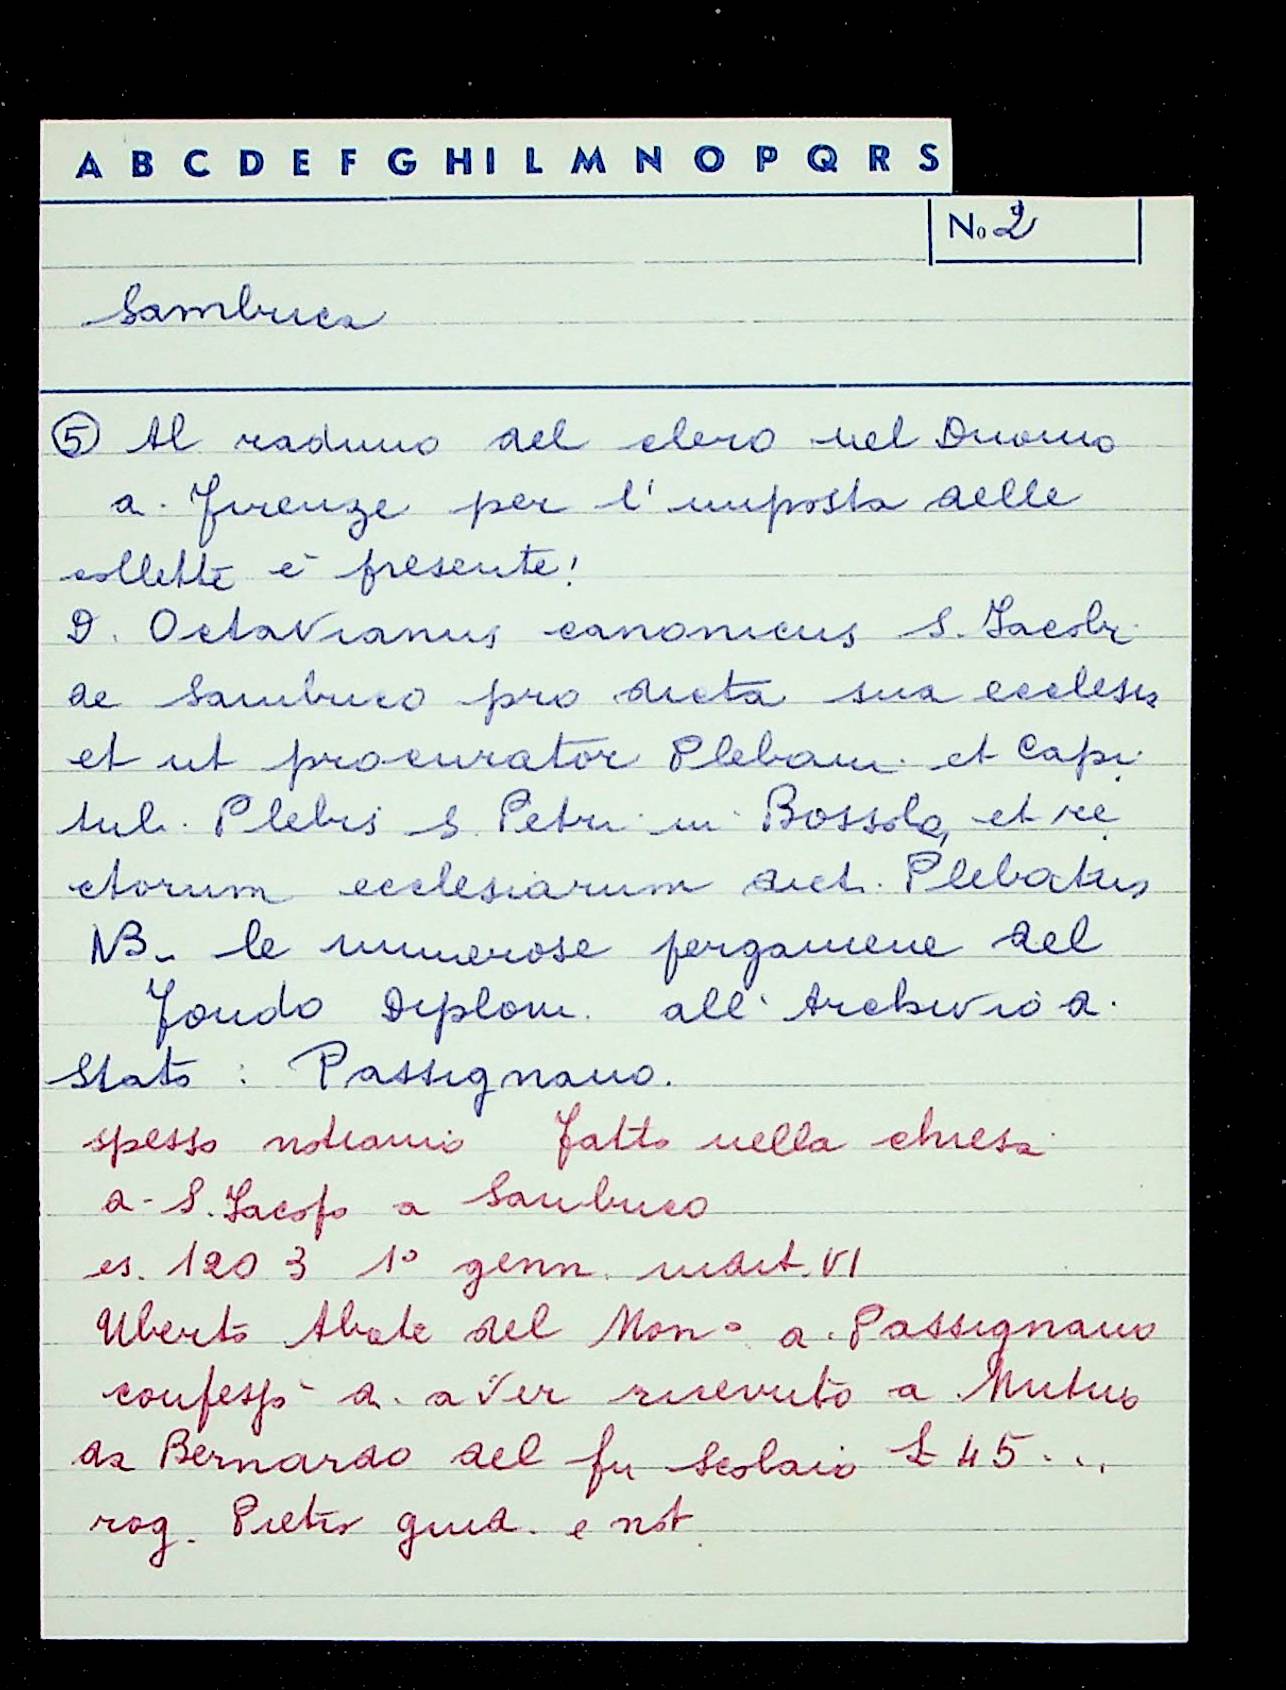 A B C D E F G H I L M N O P Q R S
No 2
Sambuca
⑤ Al raduno del clero nel Duomo
a. Firenze per l'imposta delle
collette è presente:
D. Octavianus canonicus S. Jacobi
de Sambuco pro dicta sua ecclesia
et ut procurator Plebani et Capi
tuli Plebis S. Petri in Bossolo, et re
ctorum ecclesiarum dict. Plebatus
NB. le numerose pergamene del
Fondo Diplom. all'Archivio d.
Stato: Passignano.
spesso notiamo fatto nella chiesa
d. S. Jacopo a Sambuco
es. 1203 1° genn. indit. VI
Uberto Abate del Mon° d. Passignano
confessò d. aver ricevuto a Mutuo
da Bernardo del fu Scolaio £ 45...
rog. Pietro giud. e not.